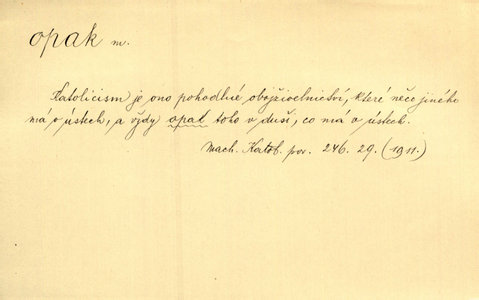 opak m.
Katolicism je ono pohodlné obojživelnictví, které něco jiného
má v ústech, a vždy opak toho v duši, co má v ústech.
Mach. Katol. pov. 246. 29. (1911.)